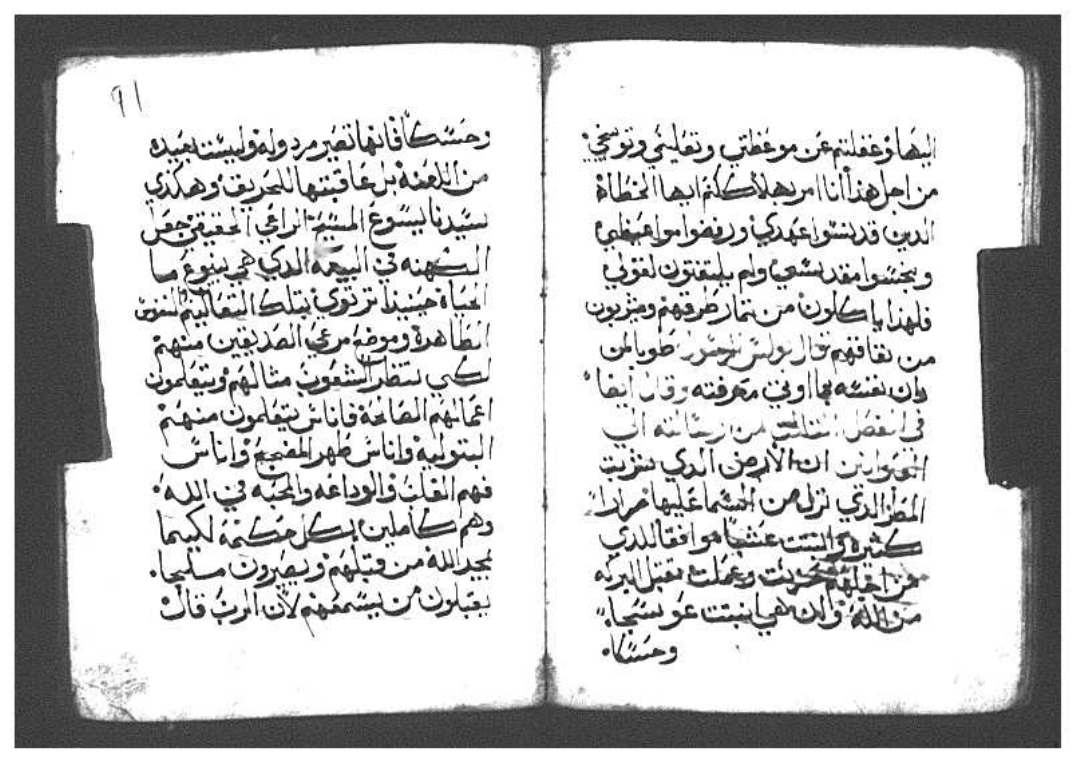 اليها وغفلتم عن موعظتي وتعليمي وتوبيخي
من اجل هذا انا امر بهلاككم ايها الخطاة
الدين قد نسوا عهدي ورفضوا مواعظي
ولم يلتفتون لقولي
فلهذا ياكلون من تمار طرقهم ويشربون
من نفاقهم قال بولس الرسول طوبا لمن
وان نفسه معرفته وقال ايضا
في الفصل التالت من رسالته الي
العبرانين ان الارض الدي شربت
المطر الدي نزل من السما عليها مرارا
كثيرة وانبتت عشبا موافقا للدي
من اجلهم حرتت وعملت تقبل البركه
من الله وان هي نبتت عوسجا
وحسكا
٩١
وحسكا فانها تصير مردوله وليست بعيده
من اللعنه بل عاقبتها للحريق وهكدي
سيدنا يسوع المسيح الراعي الحقيقي جعل
الكهنه في البيعه الدي هي ينبوع ما
الحياة حينيدا ترتوي بتلك التعاليم النفوس
الطاهرة وموضع مرعي الصديقين منهم
لكي تنتظر الشعوب مثالهم ويتعلمون
اعمالهم الصالحة فاناس يتعلمون منهم
البتوليه واناس طهر المضجع واناس
فهم القلب والوداعه والمحبه في الله
وهم كاملين بكل حكمة لكيما
يمجد الله من قبلهم ويصيرون مسيحا
يقبلون من يسمعهم لان الرب قال